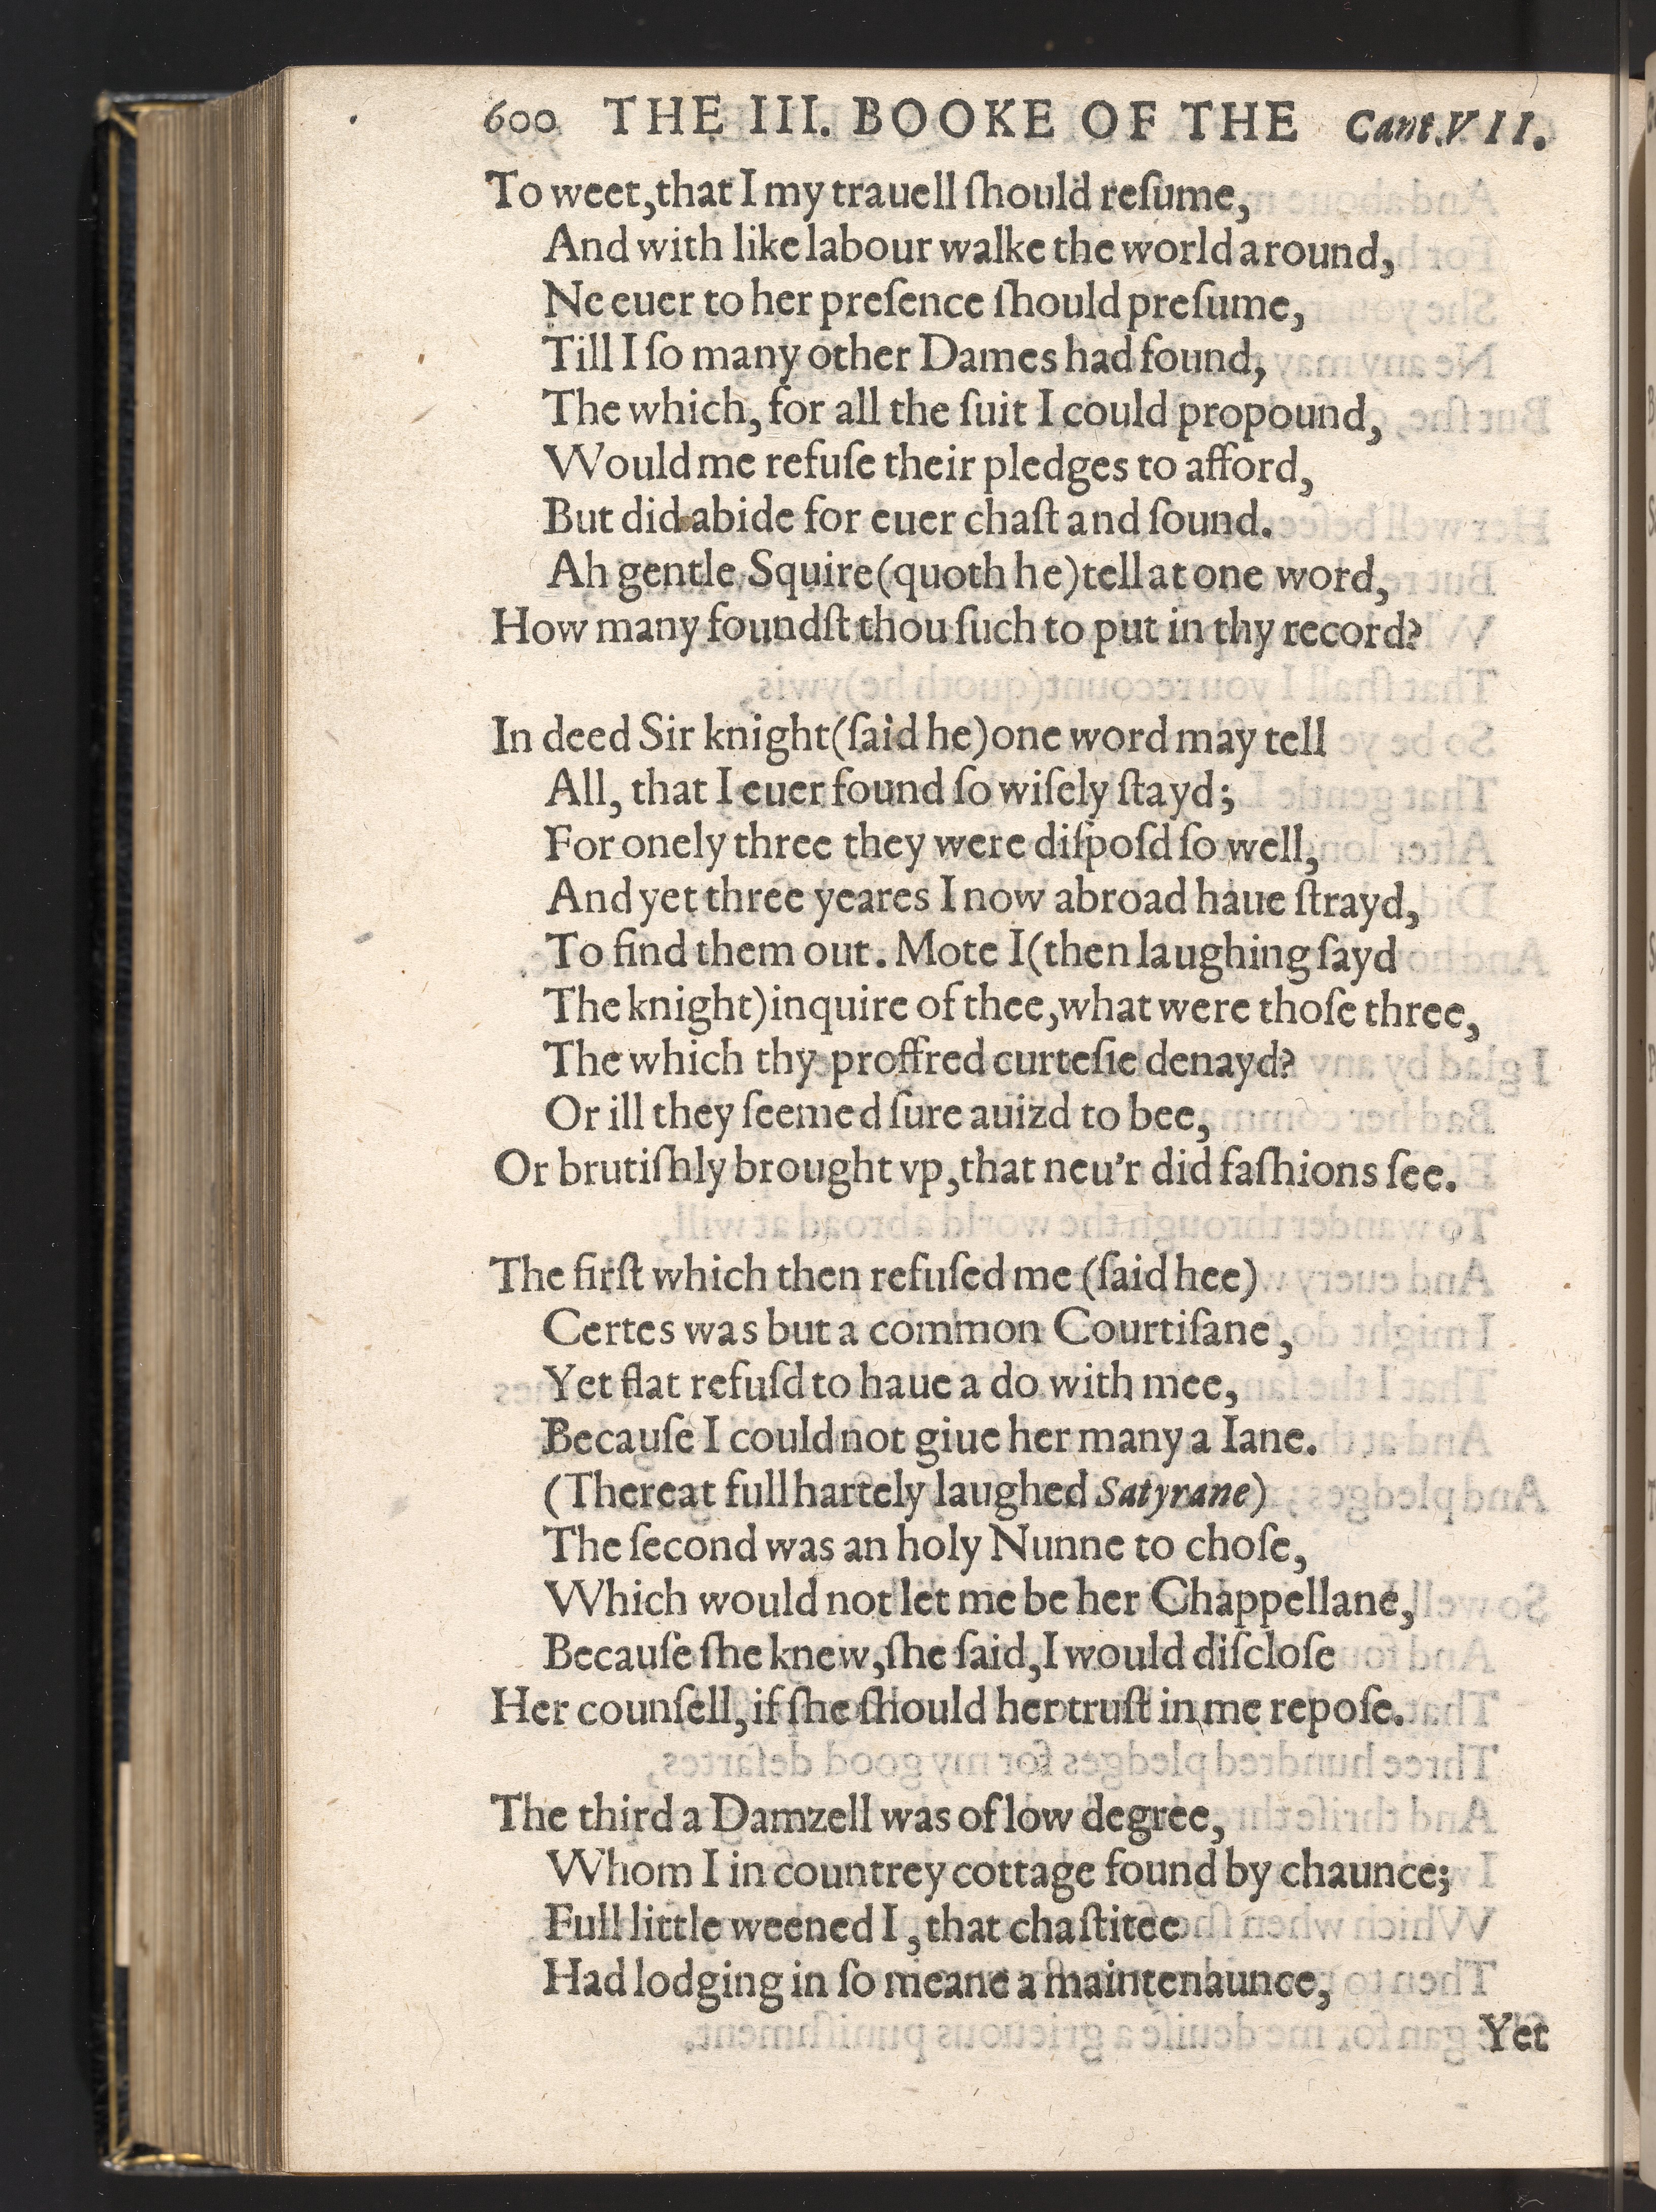 600 THE III. BOOKE OF THE Cant.VII.
To weet,that I my trauell ſhould reſume,
And with like labour walke the world around,
Ne euer to her preſence ſhould preſume,
Till I ſo many other Dames had found,
The which, for all the ſuit I could propound,
Would me refuſe their pledges to afford,
But did abide for euer chaſt and ſound.
Ah gentle Squire(quoth he)tell at one word,
How many foundſt thou ſuch to put in thy record?
In deed Sir knight(ſaid he)one word may tell
All, that I euer found ſo wiſely ſtayd;
For onely three they were diſpoſd ſo well,
And yet three yeares I now abroad haue ſtrayd,
To find them out. Mote I(then laughing ſayd
The knight)inquire of thee,what were thoſe three,
The which thy proffred curteſie denayd?
Or ill they ſeemed ſure auizd to bee,
Or brutiſhly brought vp,that neu'r did faſhions ſee.
The firſt which then refuſed me (ſaid hee)
Certes was but a common Courtiſane,
Yet flat refuſd to haue a do with mee,
Becauſe I could not giue her many a Iane.
(Thereat full hartely laughed Satyrane)
The ſecond was an holy Nunne to choſe,
Which would not let me be her Chappellane,
Becauſe ſhe knew,ſhe ſaid,I would diſcloſe
Her counſell,if ſhe ſhould her truſt in me repoſe.
The third a Damzell was of low degree,
Whom I in countrey cottage found by chaunce;
Full little weened I, that chaſtitee
Had lodging in ſo meane a maintenaunce,
Yet